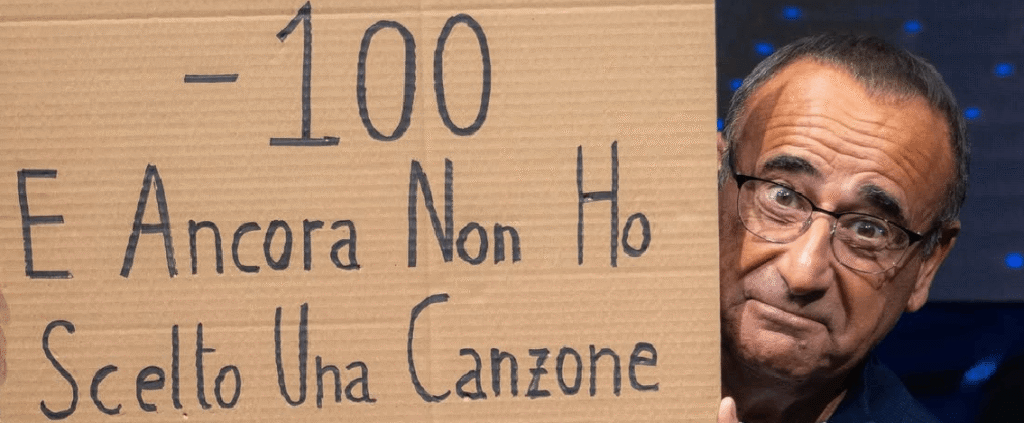 -100
E Ancora Non Ho
Scelto Una Canzone